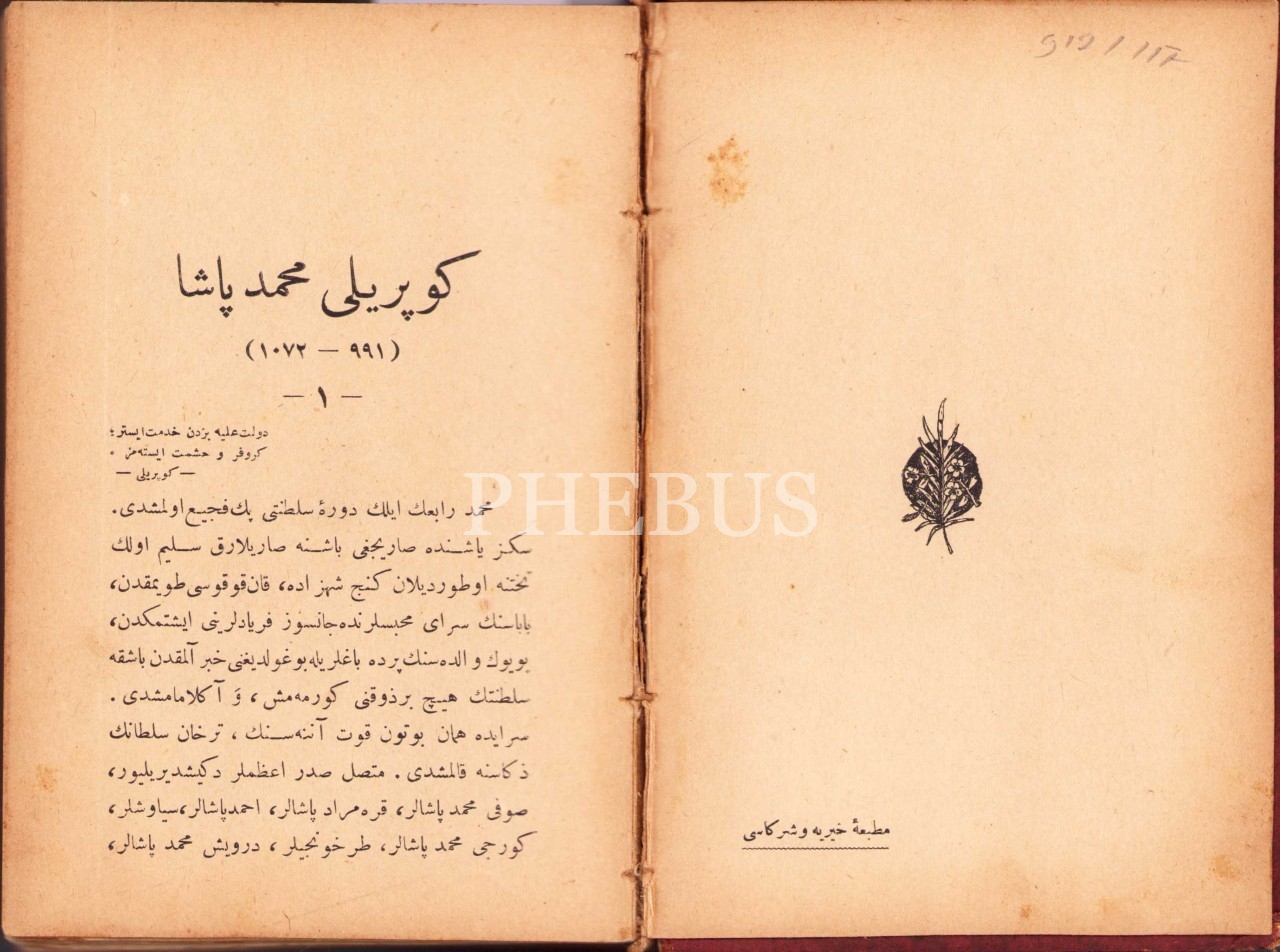 مطبعهٔ خیریه و شركاسی
كوپریلی محمد پاشا
(٩٩١ — ١٠٧٢)
— ١ —
دولت علیه بزدن خدمت ایستر؛
كروفر و حشمت ایسته‌مز .
— كوپریلی —
محمد رابعك ایلك دورهٔ سلطنتی پك فجیع اولمشدی.
سكز یاشنده صاریجغی باشنه صاریلارق سلیم اولك
تختنه اوطوردیلان كنج شهزاده، قان قوقوسی طویمقدن،
باباسنك سرای محبسلرنده جانسوز فریادلرینی ایشتمكدن،
بویوك والده‌سنك پرده باغلریله بوغولدیغنی خبر آلمقدن باشقه
سلطنتك هیچ برذوقنی كورمه‌مش، وَ آكلامامشدی .
سرایده همان بوتون قوت آننه‌سنك ، ترخان سلطانك
ذكاسنه قالمشدی . متصل صدر اعظملر دكیشدیریلیور،
صوفی محمد پاشالر، قره مراد پاشالر، احمد پاشالر، سیاوشلر،
كورجی محمد پاشالر، طرخونجیلر ، درویش محمد پاشالر،
PHEBUS